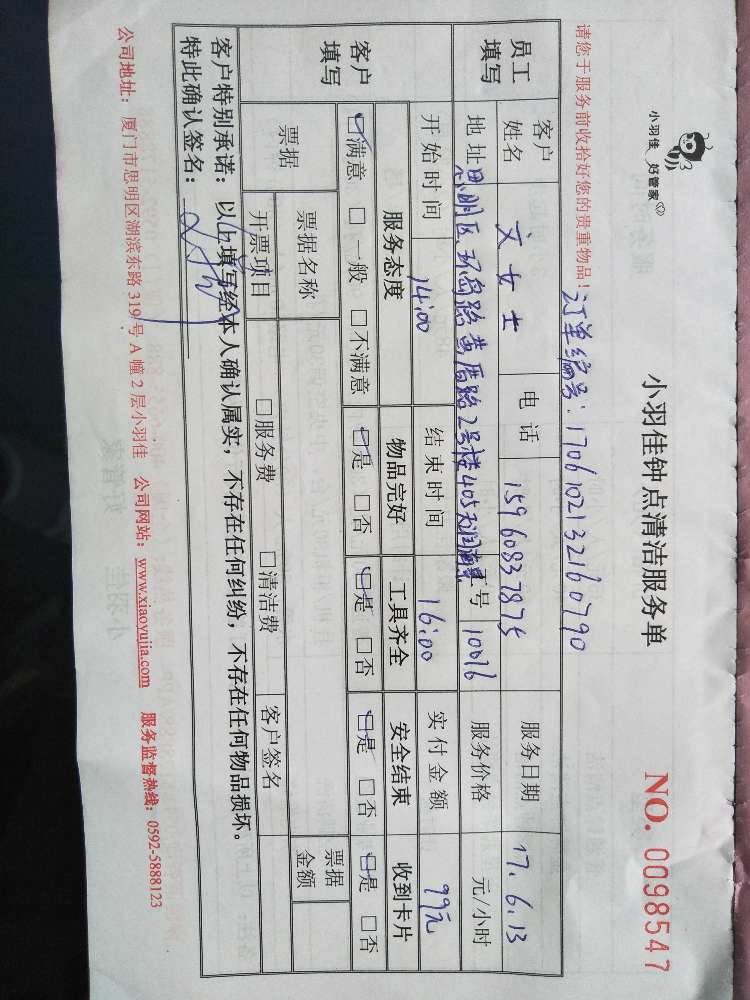 小羽佳 好管家
小羽佳钟点清洁服务单
NO. 0098547
订单编号:1706102132160790
请您于服务前收拾好您的贵重物品!
员工填写
客户姓名 文女士 电话 15960837875 服务日期 17.6.13
地址 思明区环岛路黄厝路2号楼405 号 10016 服务价格 元/小时
开始时间 14:00 结束时间 16:00 实付金额 99元
客户填写
服务态度 物品完好 工具齐全 安全结束 收到卡片
☑满意 □一般 □不满意 ☑是 □否 ☑是 □否 ☑是 □否 ☑是 □否
票据 票据名称 票据金额
开票项目 □服务费 □清洁费 客户签名
客户特别承诺:以上填写经本人确认属实,不存在任何纠纷,不存在任何物品损坏。
特此确认签名:
公司地址:厦门市思明区湖滨东路319号A幢2层小羽佳 公司网站:www.xiaoyujia.com 服务监督热线:0592-5888123